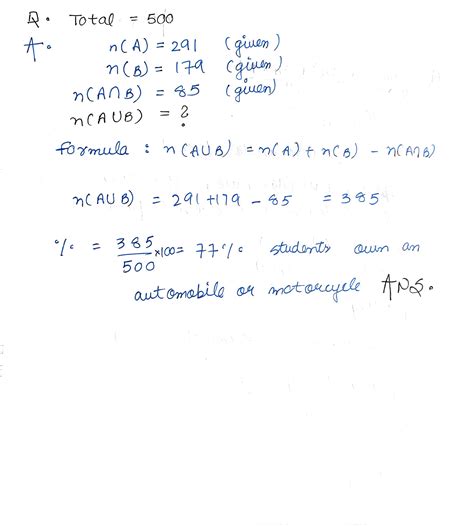 Q. Total = 500
A. n(A) = 291 (given)
n(B) = 179 (given)
n(A∩B) = 85 (given)
n(A∪B) = ?
formula : n(A∪B) = n(A) + n(B) - n(A∩B)
n(A∪B) = 291 + 179 - 85 = 385
% = 385/500 ×100 = 77% students own an
automobile or motorcycle ANS.